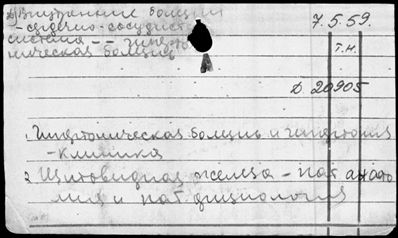 Внутренние болезни
- сердечно-сосудист
система - - гипер-то
ническая болезнь
7.5.59.
Т.Н.
Д 20905
1. Гипертоническая болезнь и гипертония
- клиника
2. Щитовидная железа - пат анато
мия и пат физиология